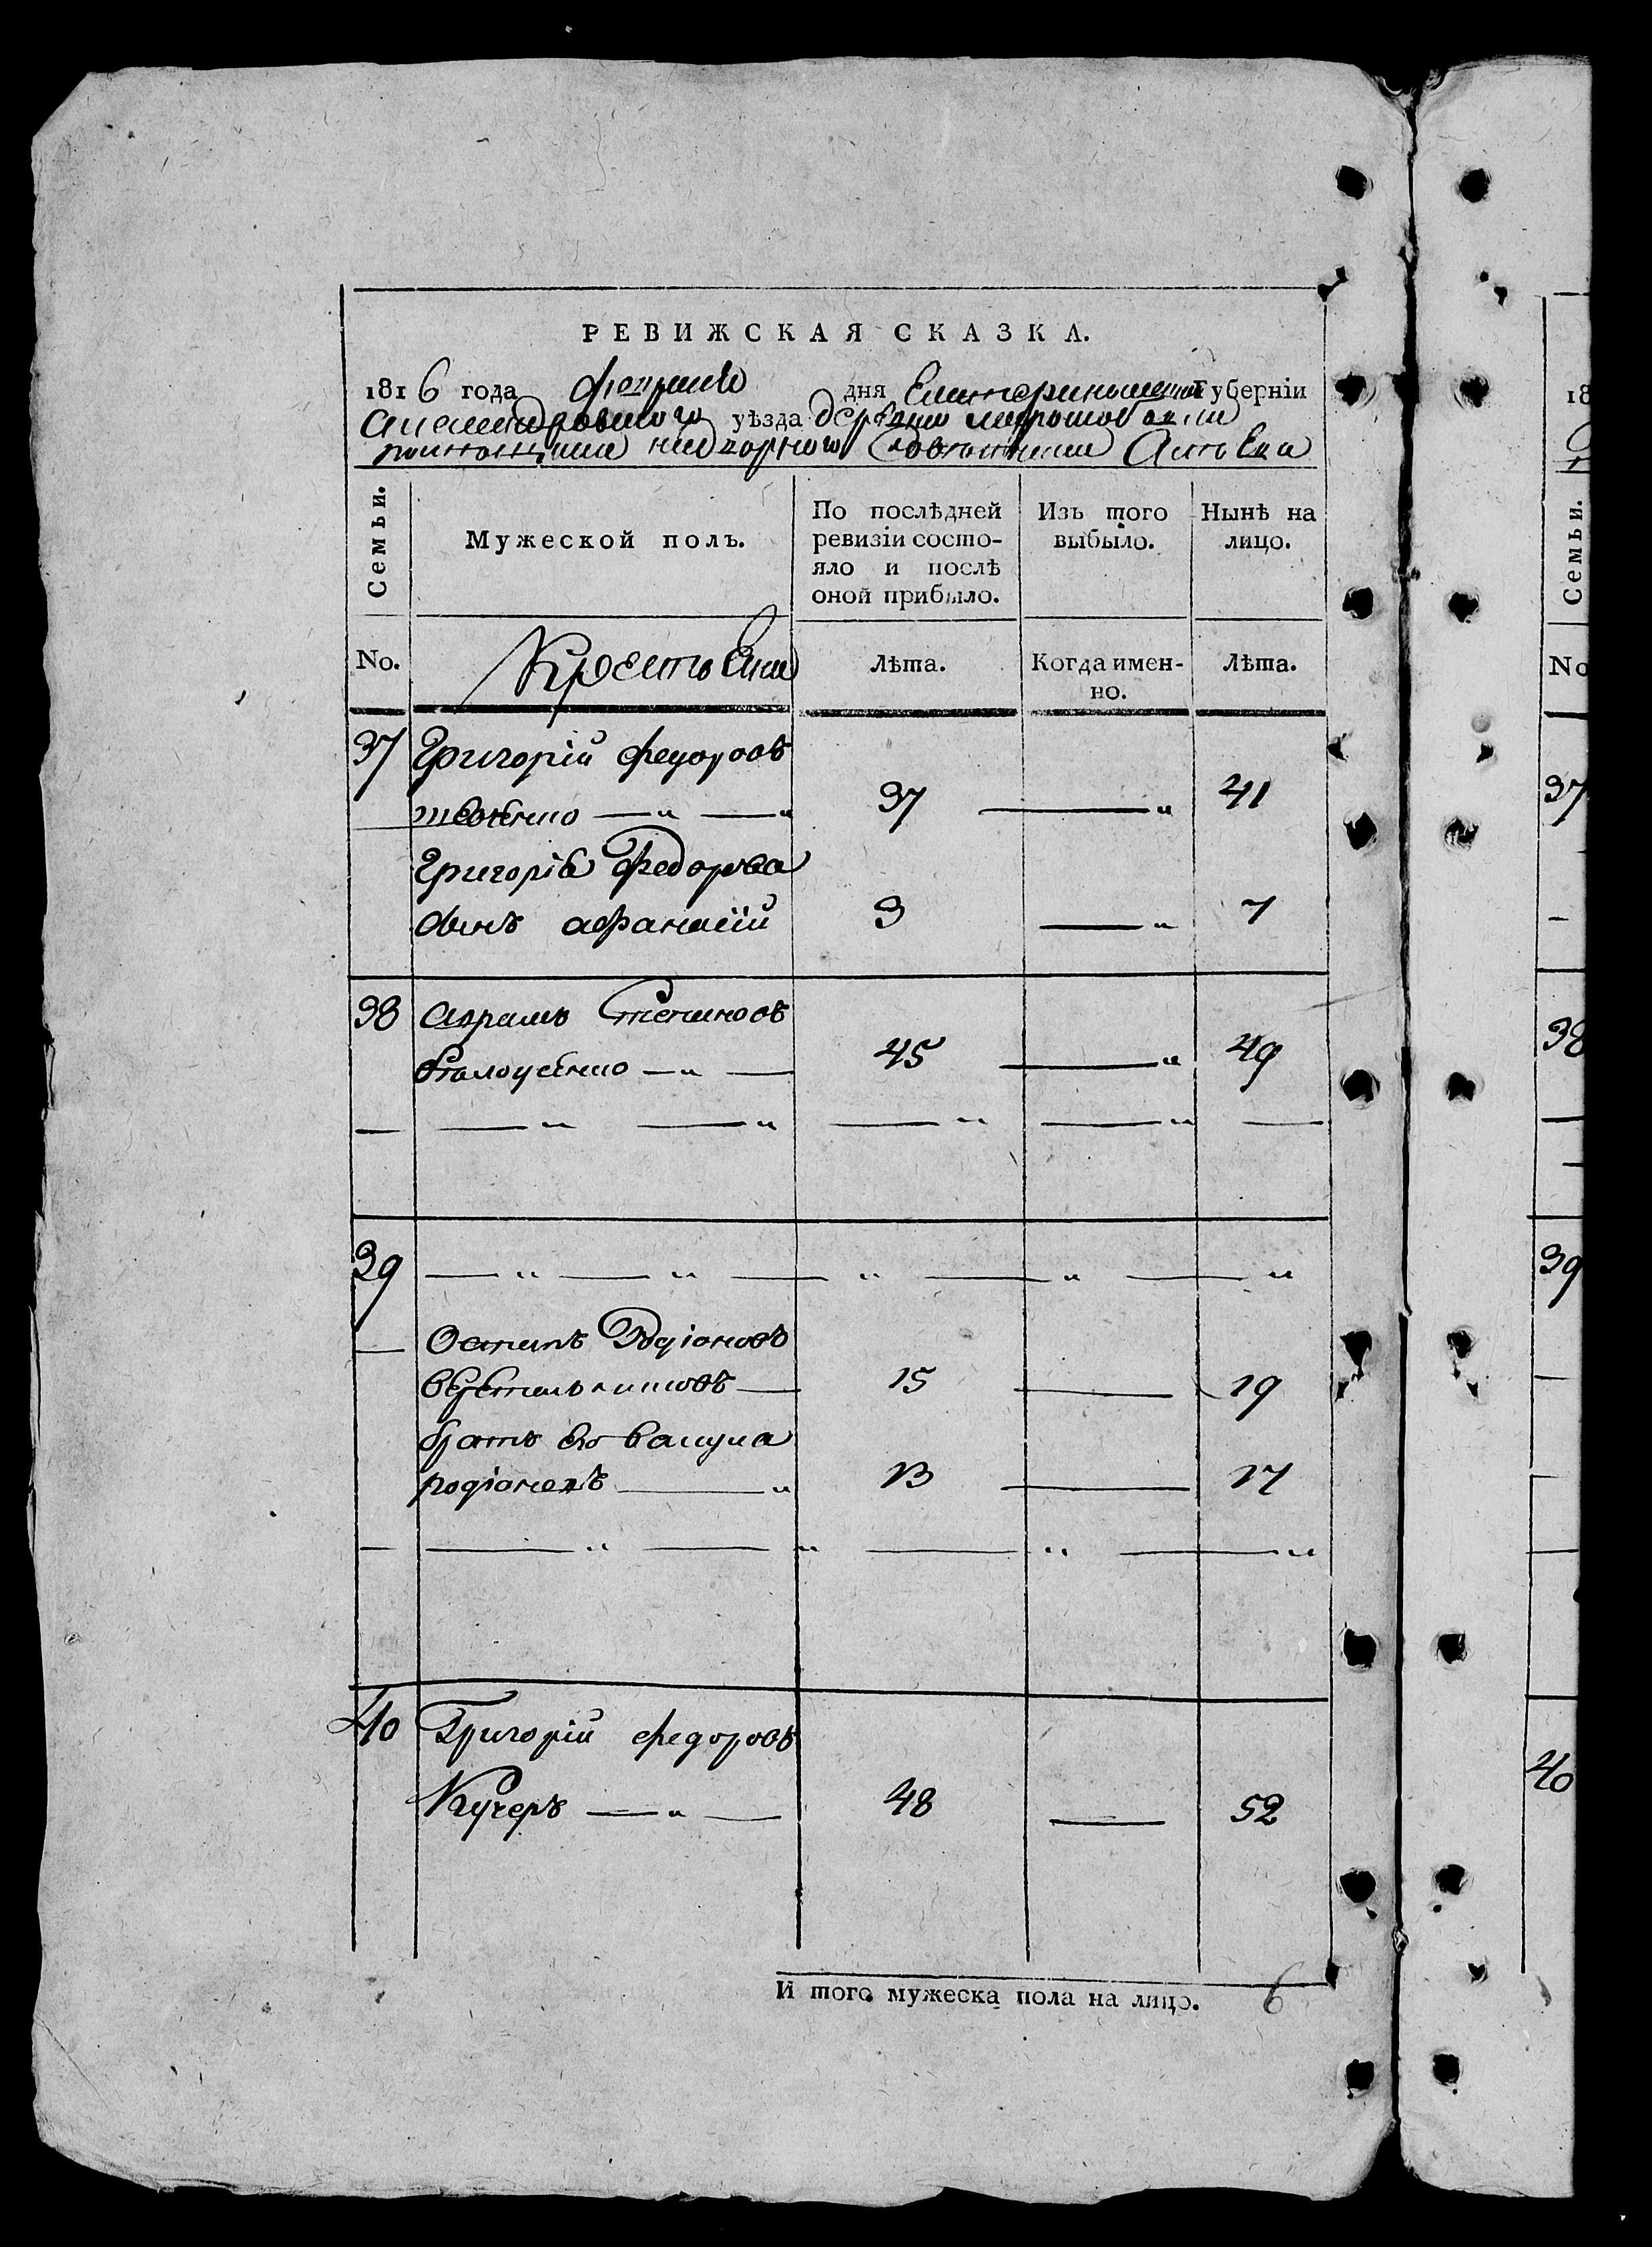 РЕВИЖСКАЯ СКАЗКА.
1816 года дня Екатеринославской губерніи
Александровского уѣзда деревни
надворного Советника
Семьи.
Мужеской полъ.
По послѣдней ревизіи состо-
яло и послѣ
оной прибыло.
Изъ того
выбыло.
Нынѣ на
лицо.
No.
Крестьяне
Лѣта.
Когда имен-
но.
Лѣта.
37 Григорій Федоровъ
37 41
Григорія Федорова
Сынъ Афанасій 3 7
38 Абрамъ Степановъ
45 49
39
Остапъ Родіоновъ
15 19
братъ его Вакула
Родіоновъ 13 17
40 Григорій Федоровъ
Кучеръ 48 52
И того мужеска пола на лицо. 6
18
Семьи.
No
37
38
39
40